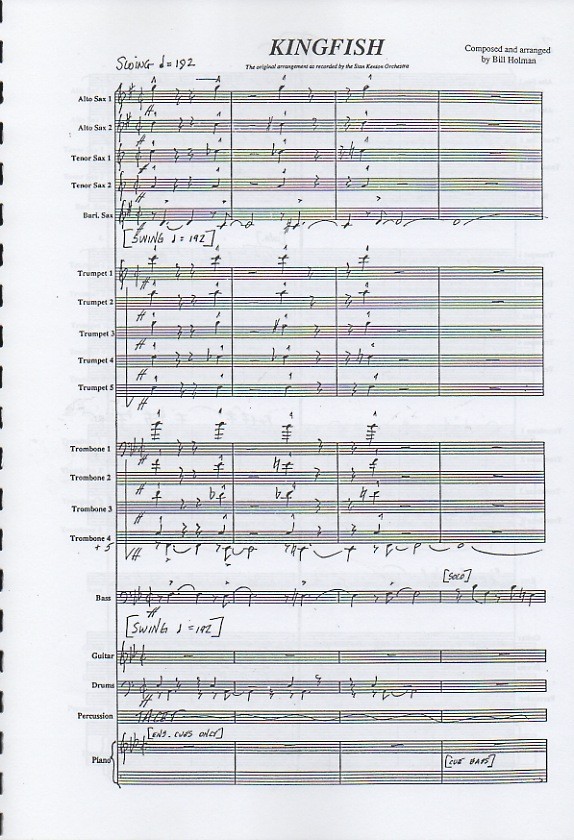 KINGFISH
The original arrangement as recorded by the Stan Kenton Orchestra
Composed and arranged
by Bill Holman
SWING ♩=192
Alto Sax 1
Alto Sax 2
Tenor Sax 1
Tenor Sax 2
Bari. Sax
[SWING ♩=192]
Trumpet 1
Trumpet 2
Trumpet 3
Trumpet 4
Trumpet 5
Trombone 1
Trombone 2
Trombone 3
Trombone 4
+5
[SOLO]
Bass
[SWING ♩=192]
Guitar
Drums
Percussion TACET
[ENS. CUES ONLY]
Piano
[CUE BARI]